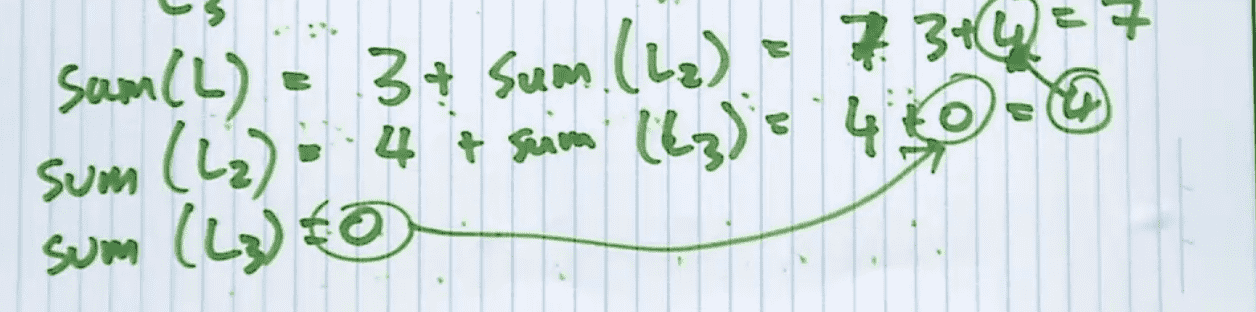 L3
Sum(L) = 3 + sum (L2) = 7 3+4 = 7
sum (L2) = 4 + sum (L3) = 4 + 0 = 4
sum (L3) = 0